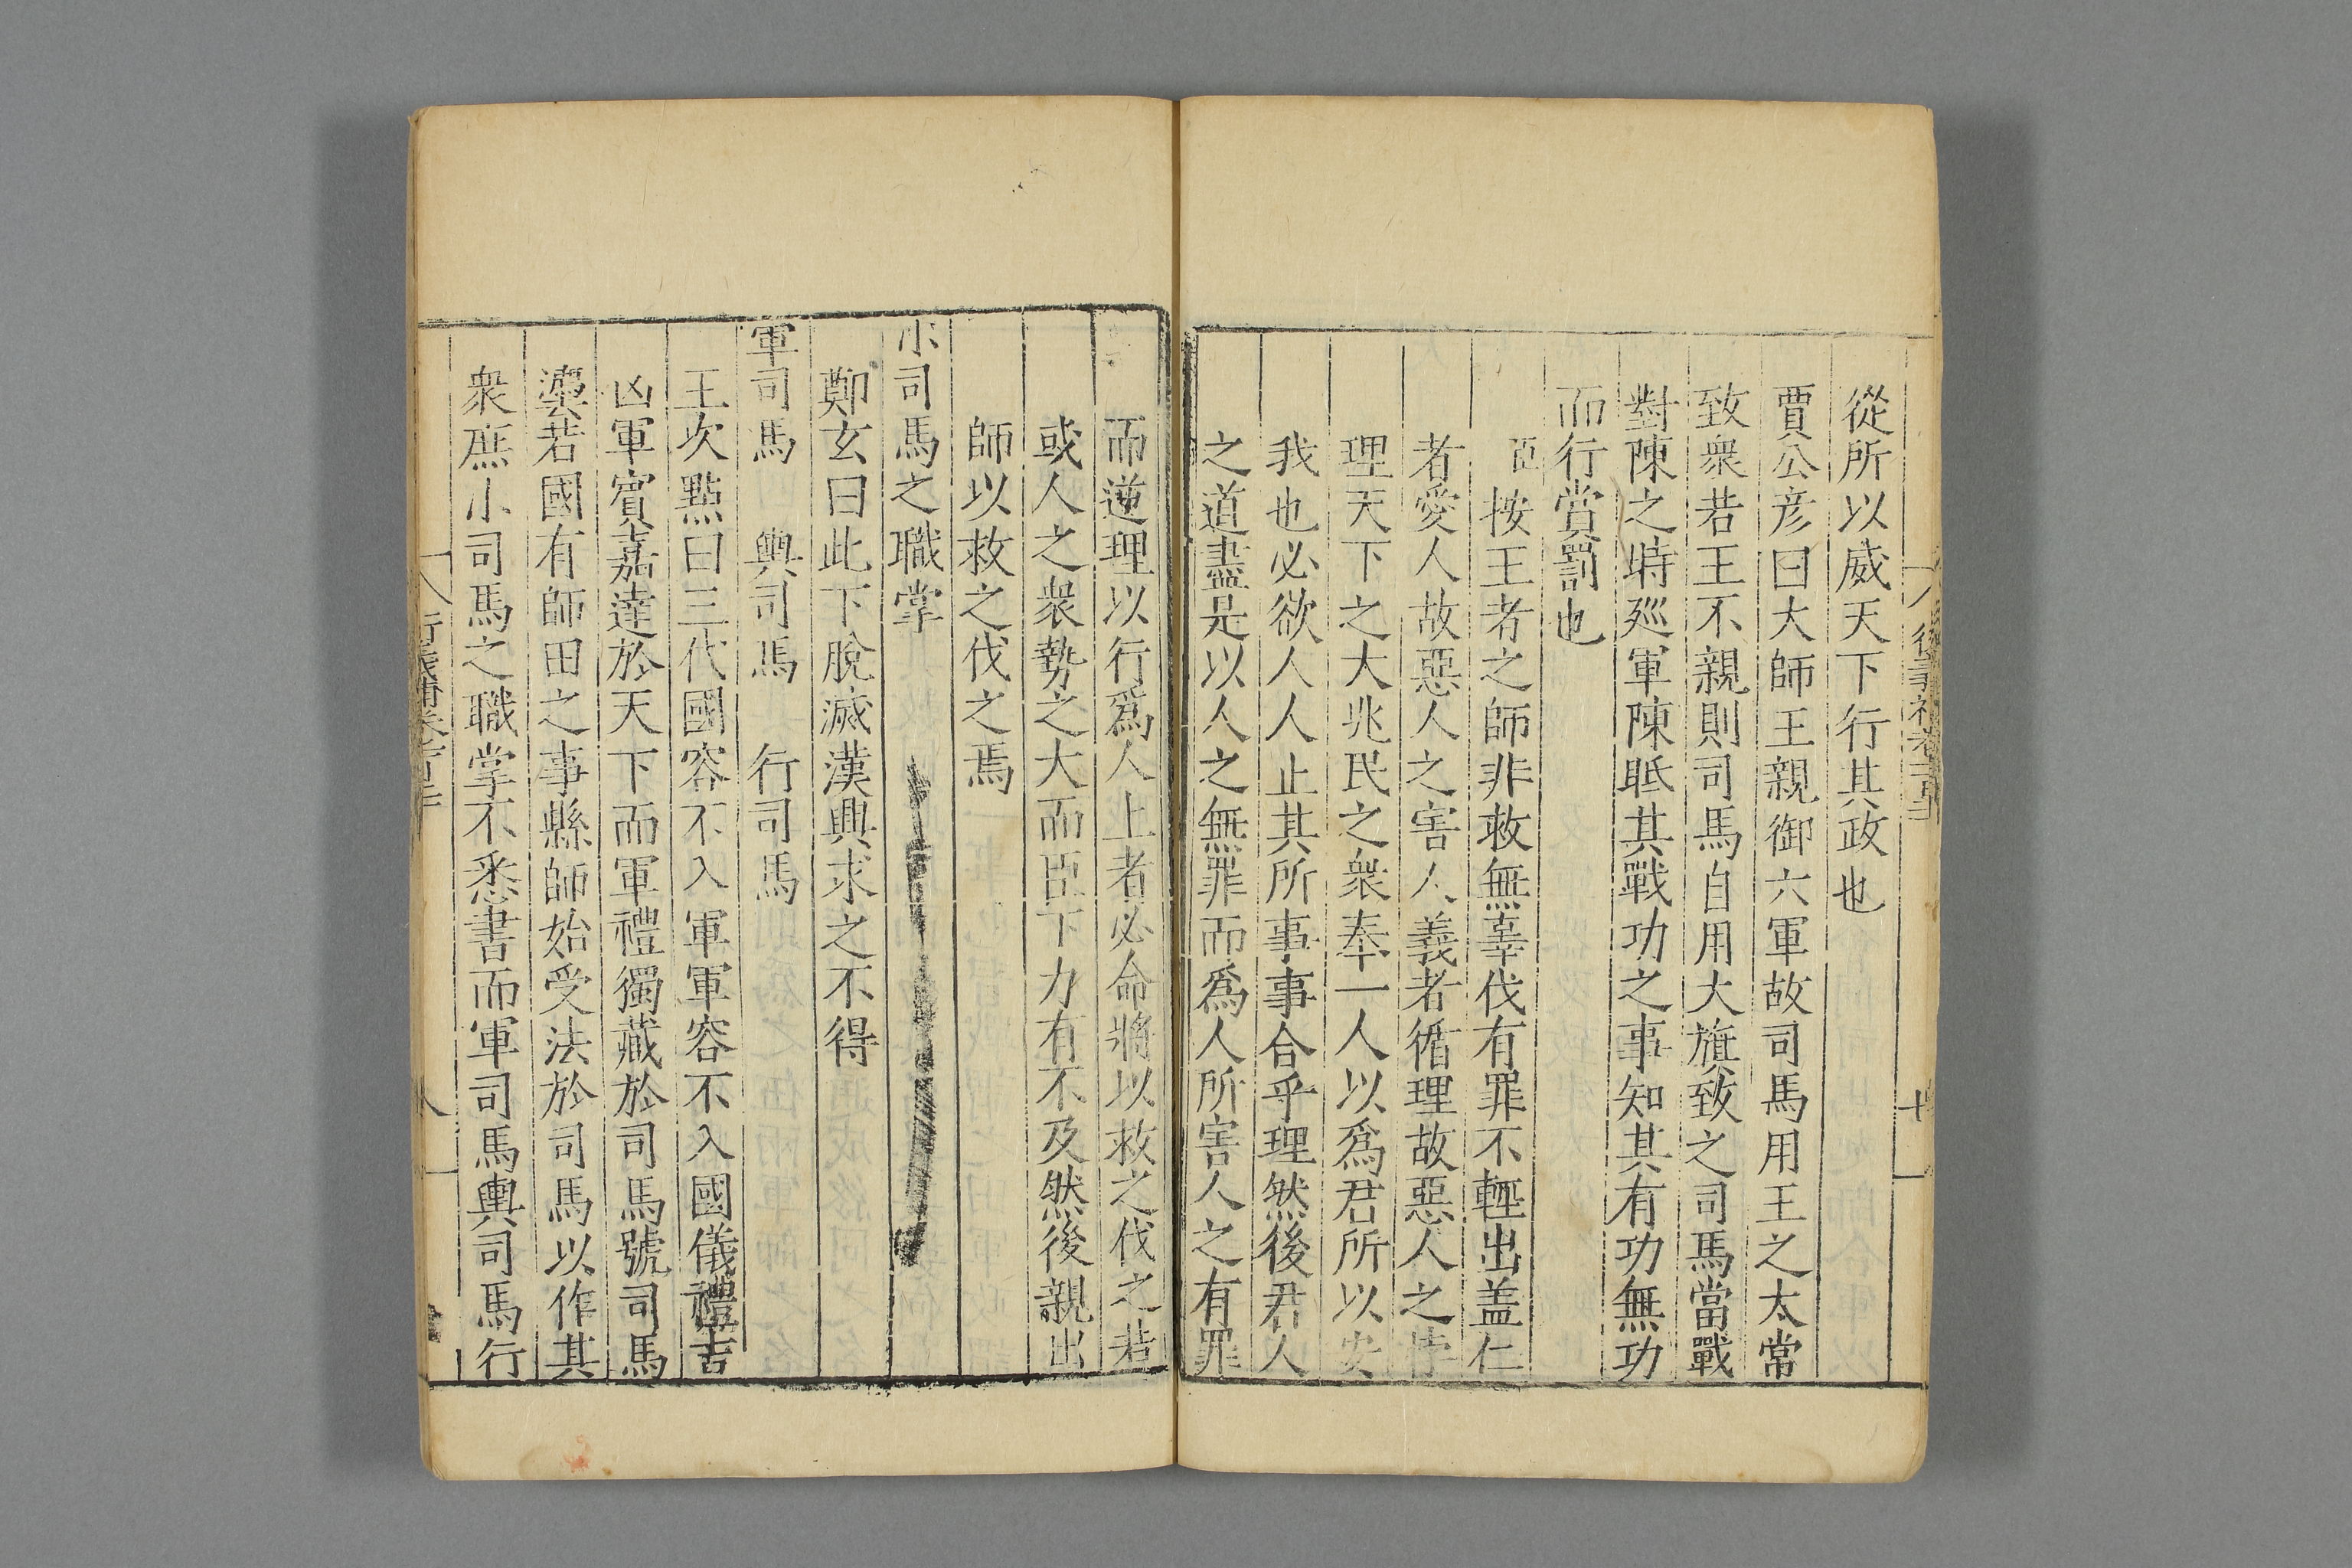 從所以威天下行其政也
賈公彦曰大師王親御六軍故司馬用王之太常
致衆若王不親則司馬自用大旗致之司馬當戰
對陳之時廵軍陳眡其戰功之事知其有功無功
而行賞罰也
臣按王者之師非救無辜伐有罪不輕出盖仁
者愛人故惡人之害人義者循理故惡人之悖
理天下之大兆民之衆奉一人以爲君所以安
我也必欲人人止其所事事合乎理然後君人
之道盡是以人之無罪而爲人所害人之有罪
而逆理以行爲人上者必命將以救之伐之若
或人之衆勢之大而臣下力有不及然後親出
師以救之伐之焉
小司馬之職掌
鄭玄曰此下脫滅漢興求之不得
軍司馬 輿司馬 行司馬
王次點曰三代國容不入軍軍容不入國儀禮吉
凶軍賓嘉達於天下而軍禮獨藏於司馬號司馬
灋若國有師田之事縣師始受法於司馬以作其
衆庶小司馬之職掌不悉書而軍司馬輿司馬行